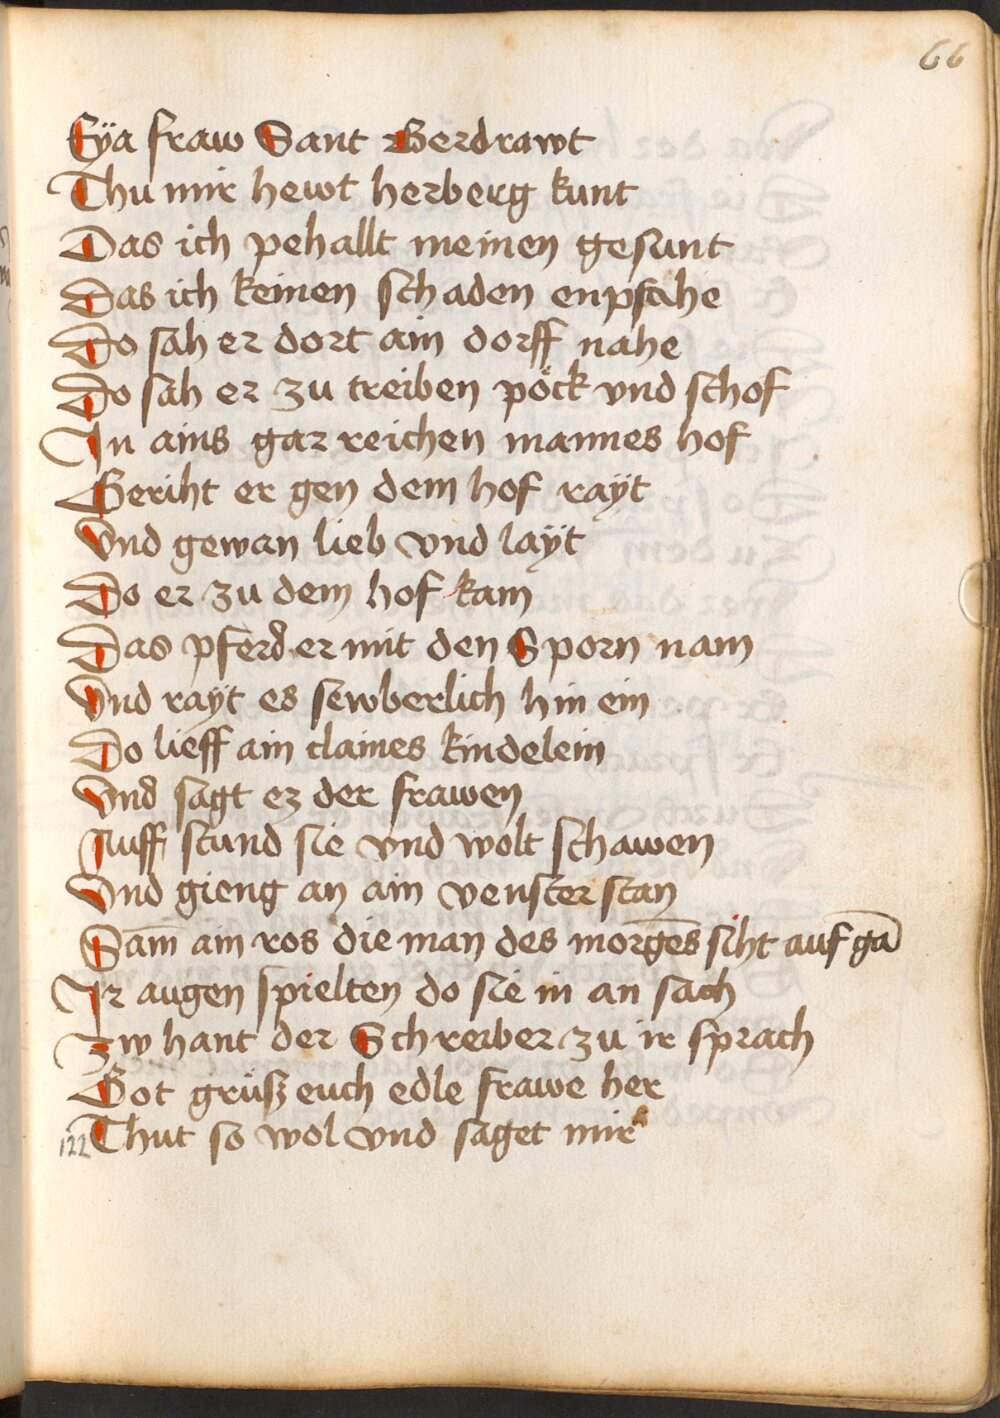 66
Eÿa fraw Sant Gerdrawt
Thu mir hewt herberg kunt
Das ich pehallt meinen gesunt
Das ich keinen schaden enpfahe
Do sah er dort ain dorff nahe
Do sah er zu treiben pöck vnd schof
In ains gar reichen mannes hof
Geriht er gen dem hof raÿt
Vnd gewan lieb vnd laÿt
Do er zu dem hof kam
Das pferd er mit den Sporn nam
Vnd raÿt es sewberlich hin ein
Do lieff ain claines kindelein
Vnd sagt ez der frawen
Auff stund sie vnd wolt schawen
Vnd gieng an ain venster stan
Sam̄ ain ros die man des morgēs siht auf gā
Ir augen spielten do sie in an sach
Zw hant der Schreiber zu ir sprach
Got grüß euch edle frawe her
122 Thut so wol vnd saget mir